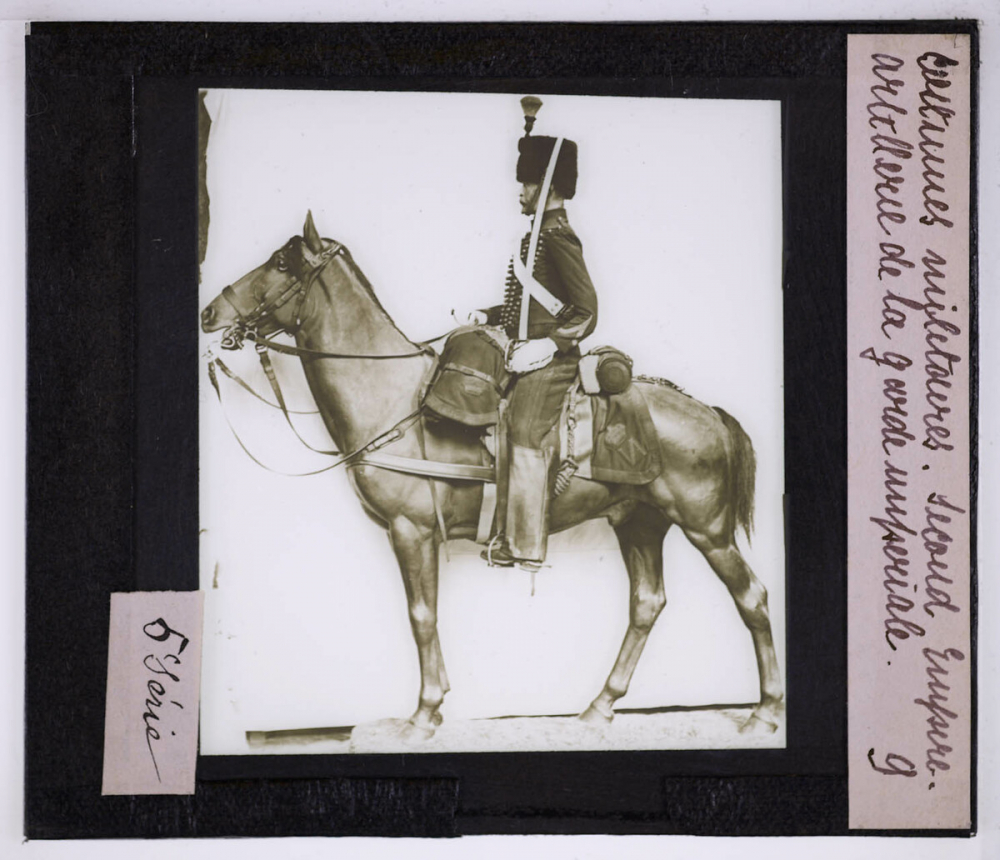 Costumes militaires. Second Empire.
artillerie de la garde impériale. 9
5e Série